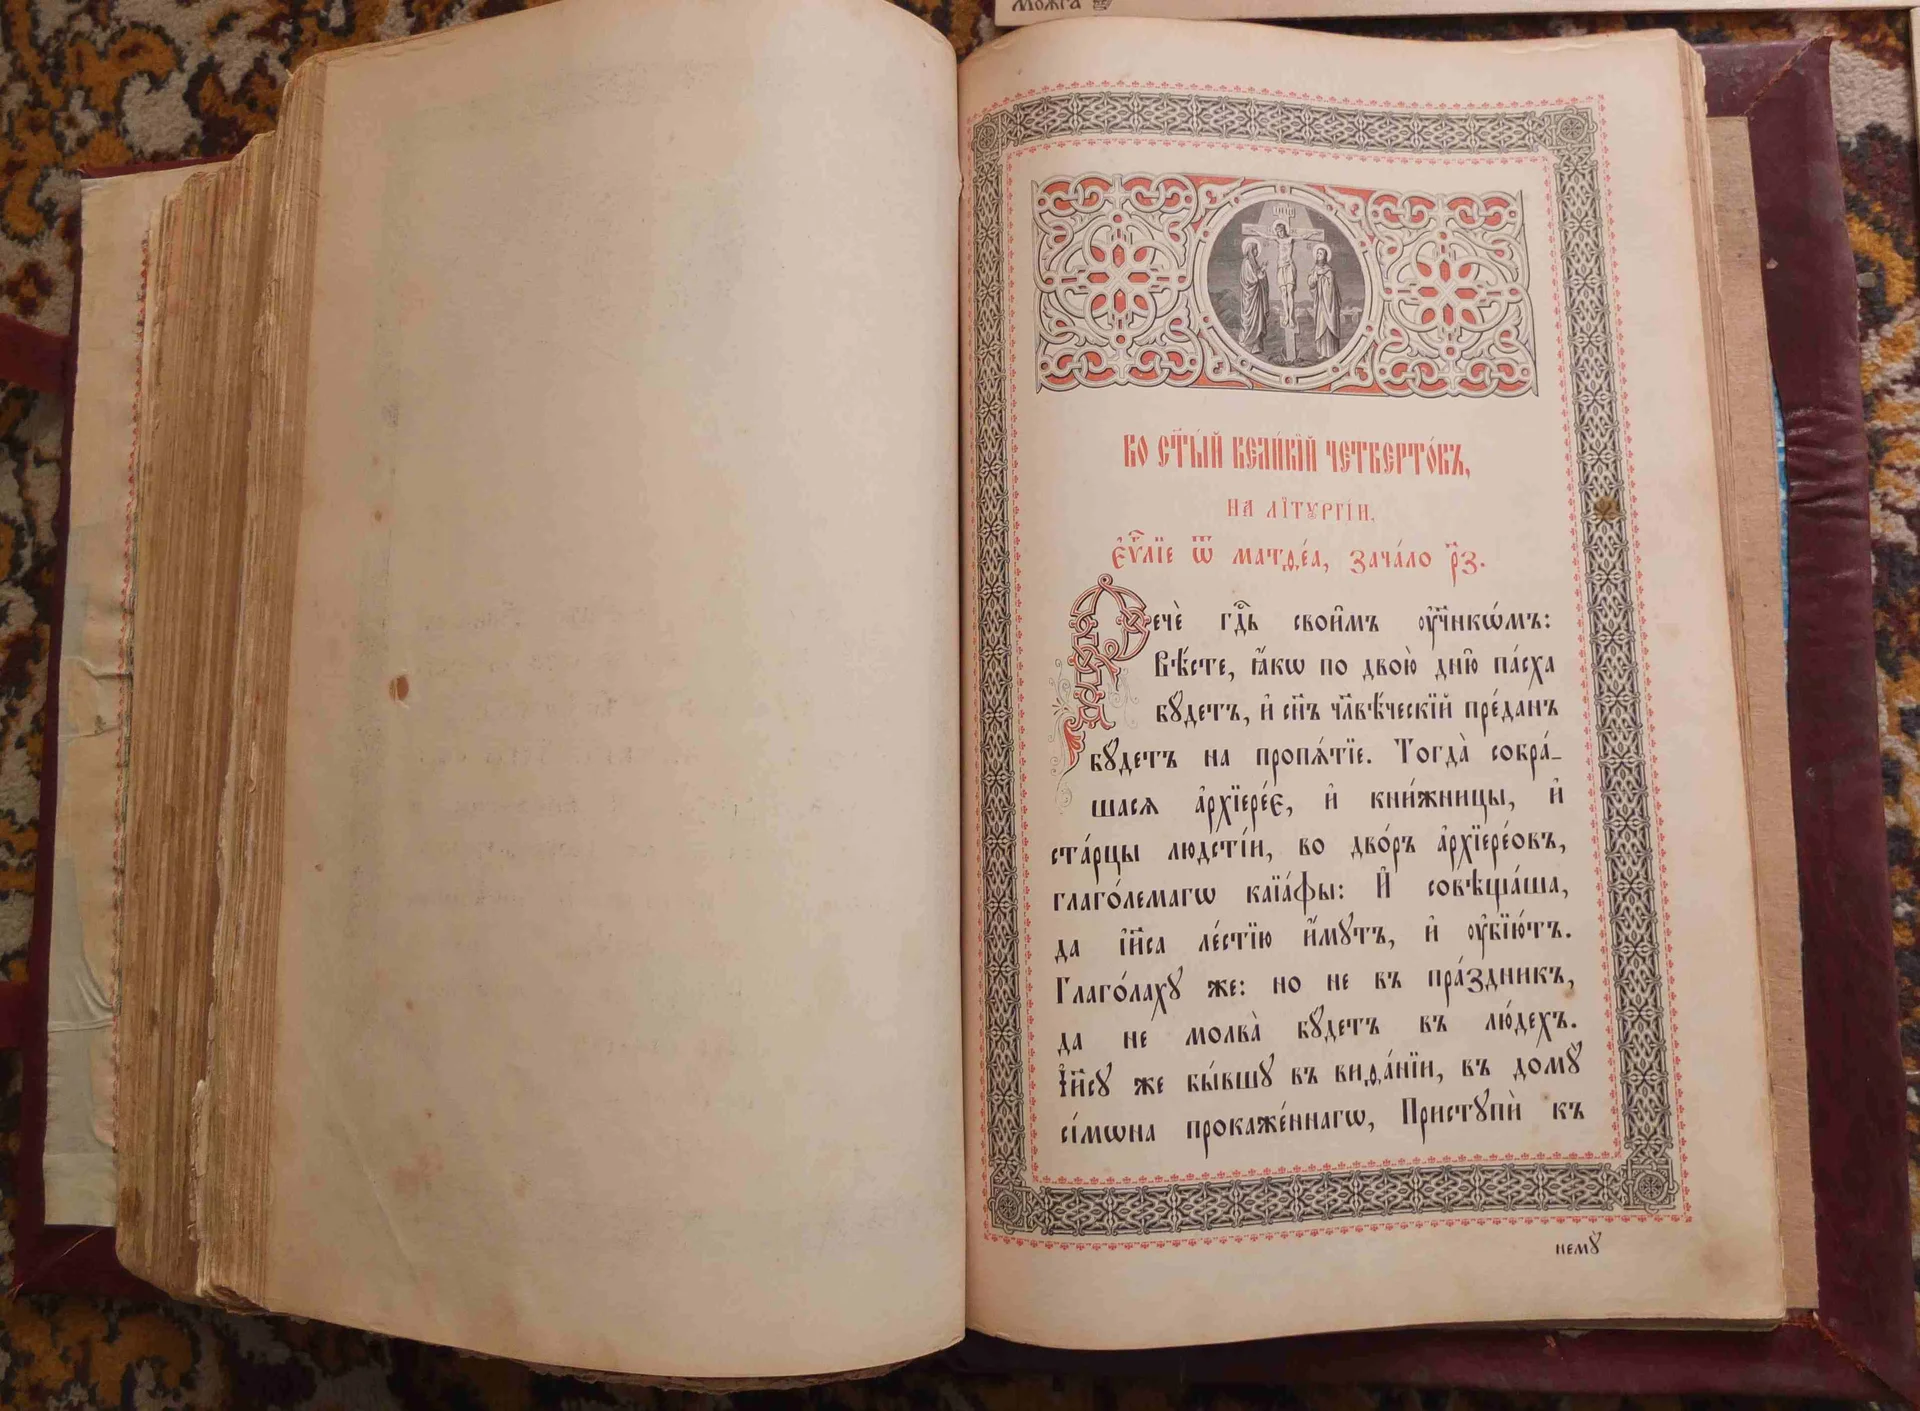 Можга
Во ст҃ы́й вели́кїй четверто́къ,
на лїтургі́и.
Є҆ѵⷢ҇лїе ѿ матѳе́а, зача́ло р҃з.
Речѐ гдⷭ҇ь свои̑мъ ᲂу҆чн҃кѡ́мъ:
Вѣ́сте, ꙗ҆́кѡ по двою̀ дню̑ па́сха
бꙋ́детъ, и҆ сн҃ъ чл҃вѣ́ческїй пре́данъ
бꙋ́детъ на пропѧ́тїе. Тогда̀ собра́_
шасѧ а҆рхїере́є, и҆ кни́жницы, и҆
ста́рцы людсті́и, во дво́ръ а҆рхїере́овъ,
глаго́лемагѡ каїа́фы: И҆ совѣща́ша,
да і҆и҃са ле́стїю и҆́мꙋтъ, и҆ ᲂу҆бїю́тъ.
Глаго́лахꙋ же: но не въ пра́здникъ,
да не молва̀ бꙋ́детъ въ лю́дехъ.
І҆и҃сꙋ же бы́вшꙋ въ виѳа́нїи, въ домꙋ̀
сі́мѡна прокаже́ннагѡ, Пристꙋпѝ къ
немꙋ̀